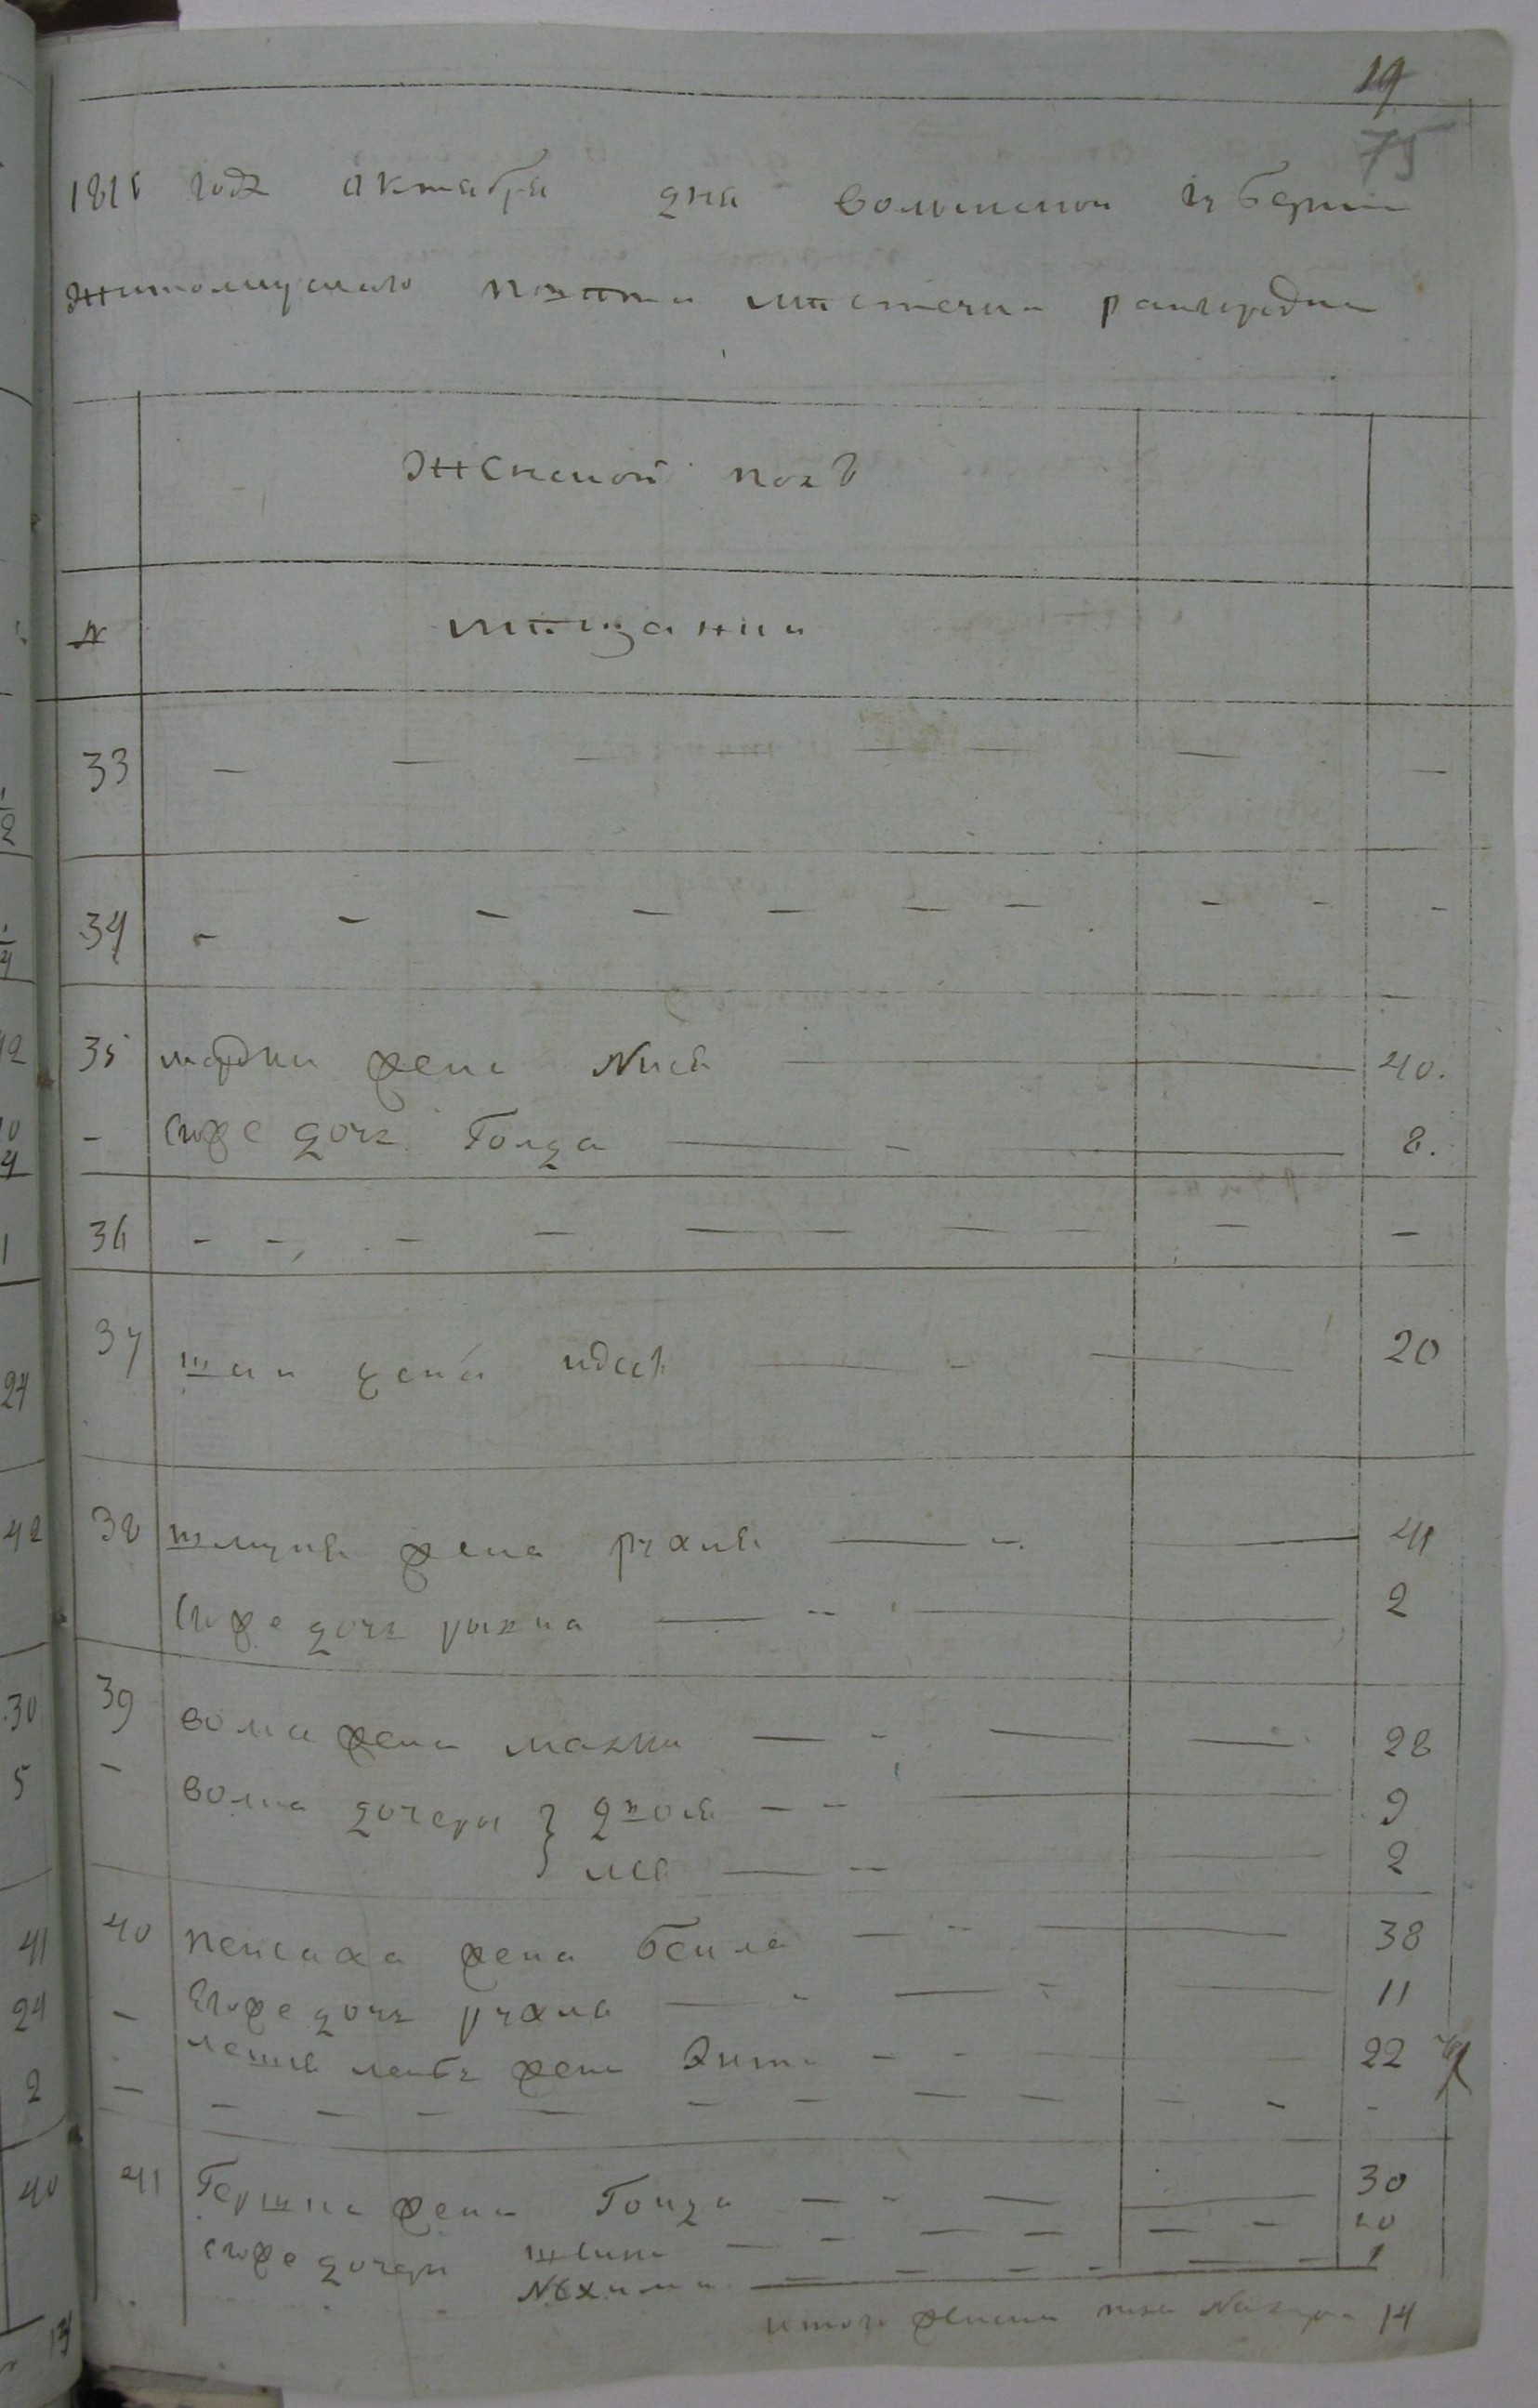 19
75
1816 годѣ октября дня волынской губернии
житомирского повѣта мѣстечка
Женской полъ
№ мѣщанки
33 — — — — — — — —
34 — — — — — — — — — —
35 мордки жена Нися — 40.
— его же дочь Голда — 8.
36 — — — — — — — — — —
37 жена идея — 20
38 шмуля жена рухля — 41
его же дочь рыхла — 2
39 волка жена малка — 28
— волка дочери двоя — 9
лея — 2
40 пейсаха жена бейла — 38
— его же дочь рухля — 11
лейбы жена Эита — 22
— — — — — — — — — —
41 Гершка жена Голда — 30
его же дочери — 10
Нехима — 1
итого женска пола 14